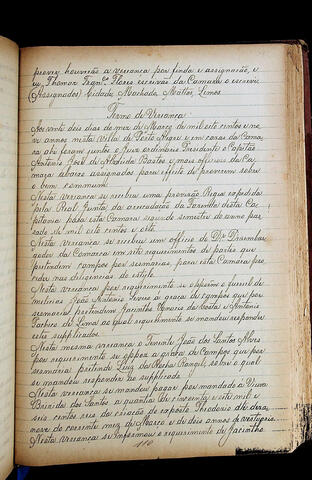 prover houverão a vereança por finda e assignação, e
eu, Thomaz Franco Flores escrivão da Camara o escrevi
(Assignados) Cidade, Machado, Mattos, Lemos.
Termo de Vereança
Aos vinte dois dias do mez de Março de mil oito centos e no-
ve annos nesta Villa de Porto Alegre e em casas da Cama-
ra ahi foram juntos o Juiz ordinario Presidente o Capitão
Antonio José de Almeida Bastos e mais officiaes da Ca-
mara abaixo assignados para effeito de proverem sobre
o bem commum.
Nesta vereança se recebeu uma provisão Regia expedida
pela Real Junta da arrecadação da Fazenda desta Ca-
pitania para esta Camara segundo semestre do anno pas-
sado de mil oito centos e oito.
Nesta vereança se recebeu um officio do Dr. Desembar-
gador da Comarca em sete requerimentos de partes que
pretendem campos por sesmarias, para esta Camara pro-
ceder nas diligencias do estylo.
Nesta vereança por requerimento se oppôem o furriel de
melicias João Antonio a graça de campos que por
sesmaria pretendem Jacintho da Costa e Antonio
de Lemos ao qual requerimento se mandou responder
estes supplicados.
Nesta mesma vereança o Tenente João dos Santos Alves
por requerimento se oppoz a graça de Campos que por
sesmaria pretende Luiz da Rocha Rangel, sobre o qual
se mandou responder ao supplicado.
Nesta vereança se mandou pagar por mandado a Viuva
Brenida dos Santos a quantia de cincoenta e oito mil e
seis centos reis da criação do exposto Theodoro de deze-
nove do corrente mez de Março e de dois annos
Nesta vereança se informou o requerimento de Jacintho
110